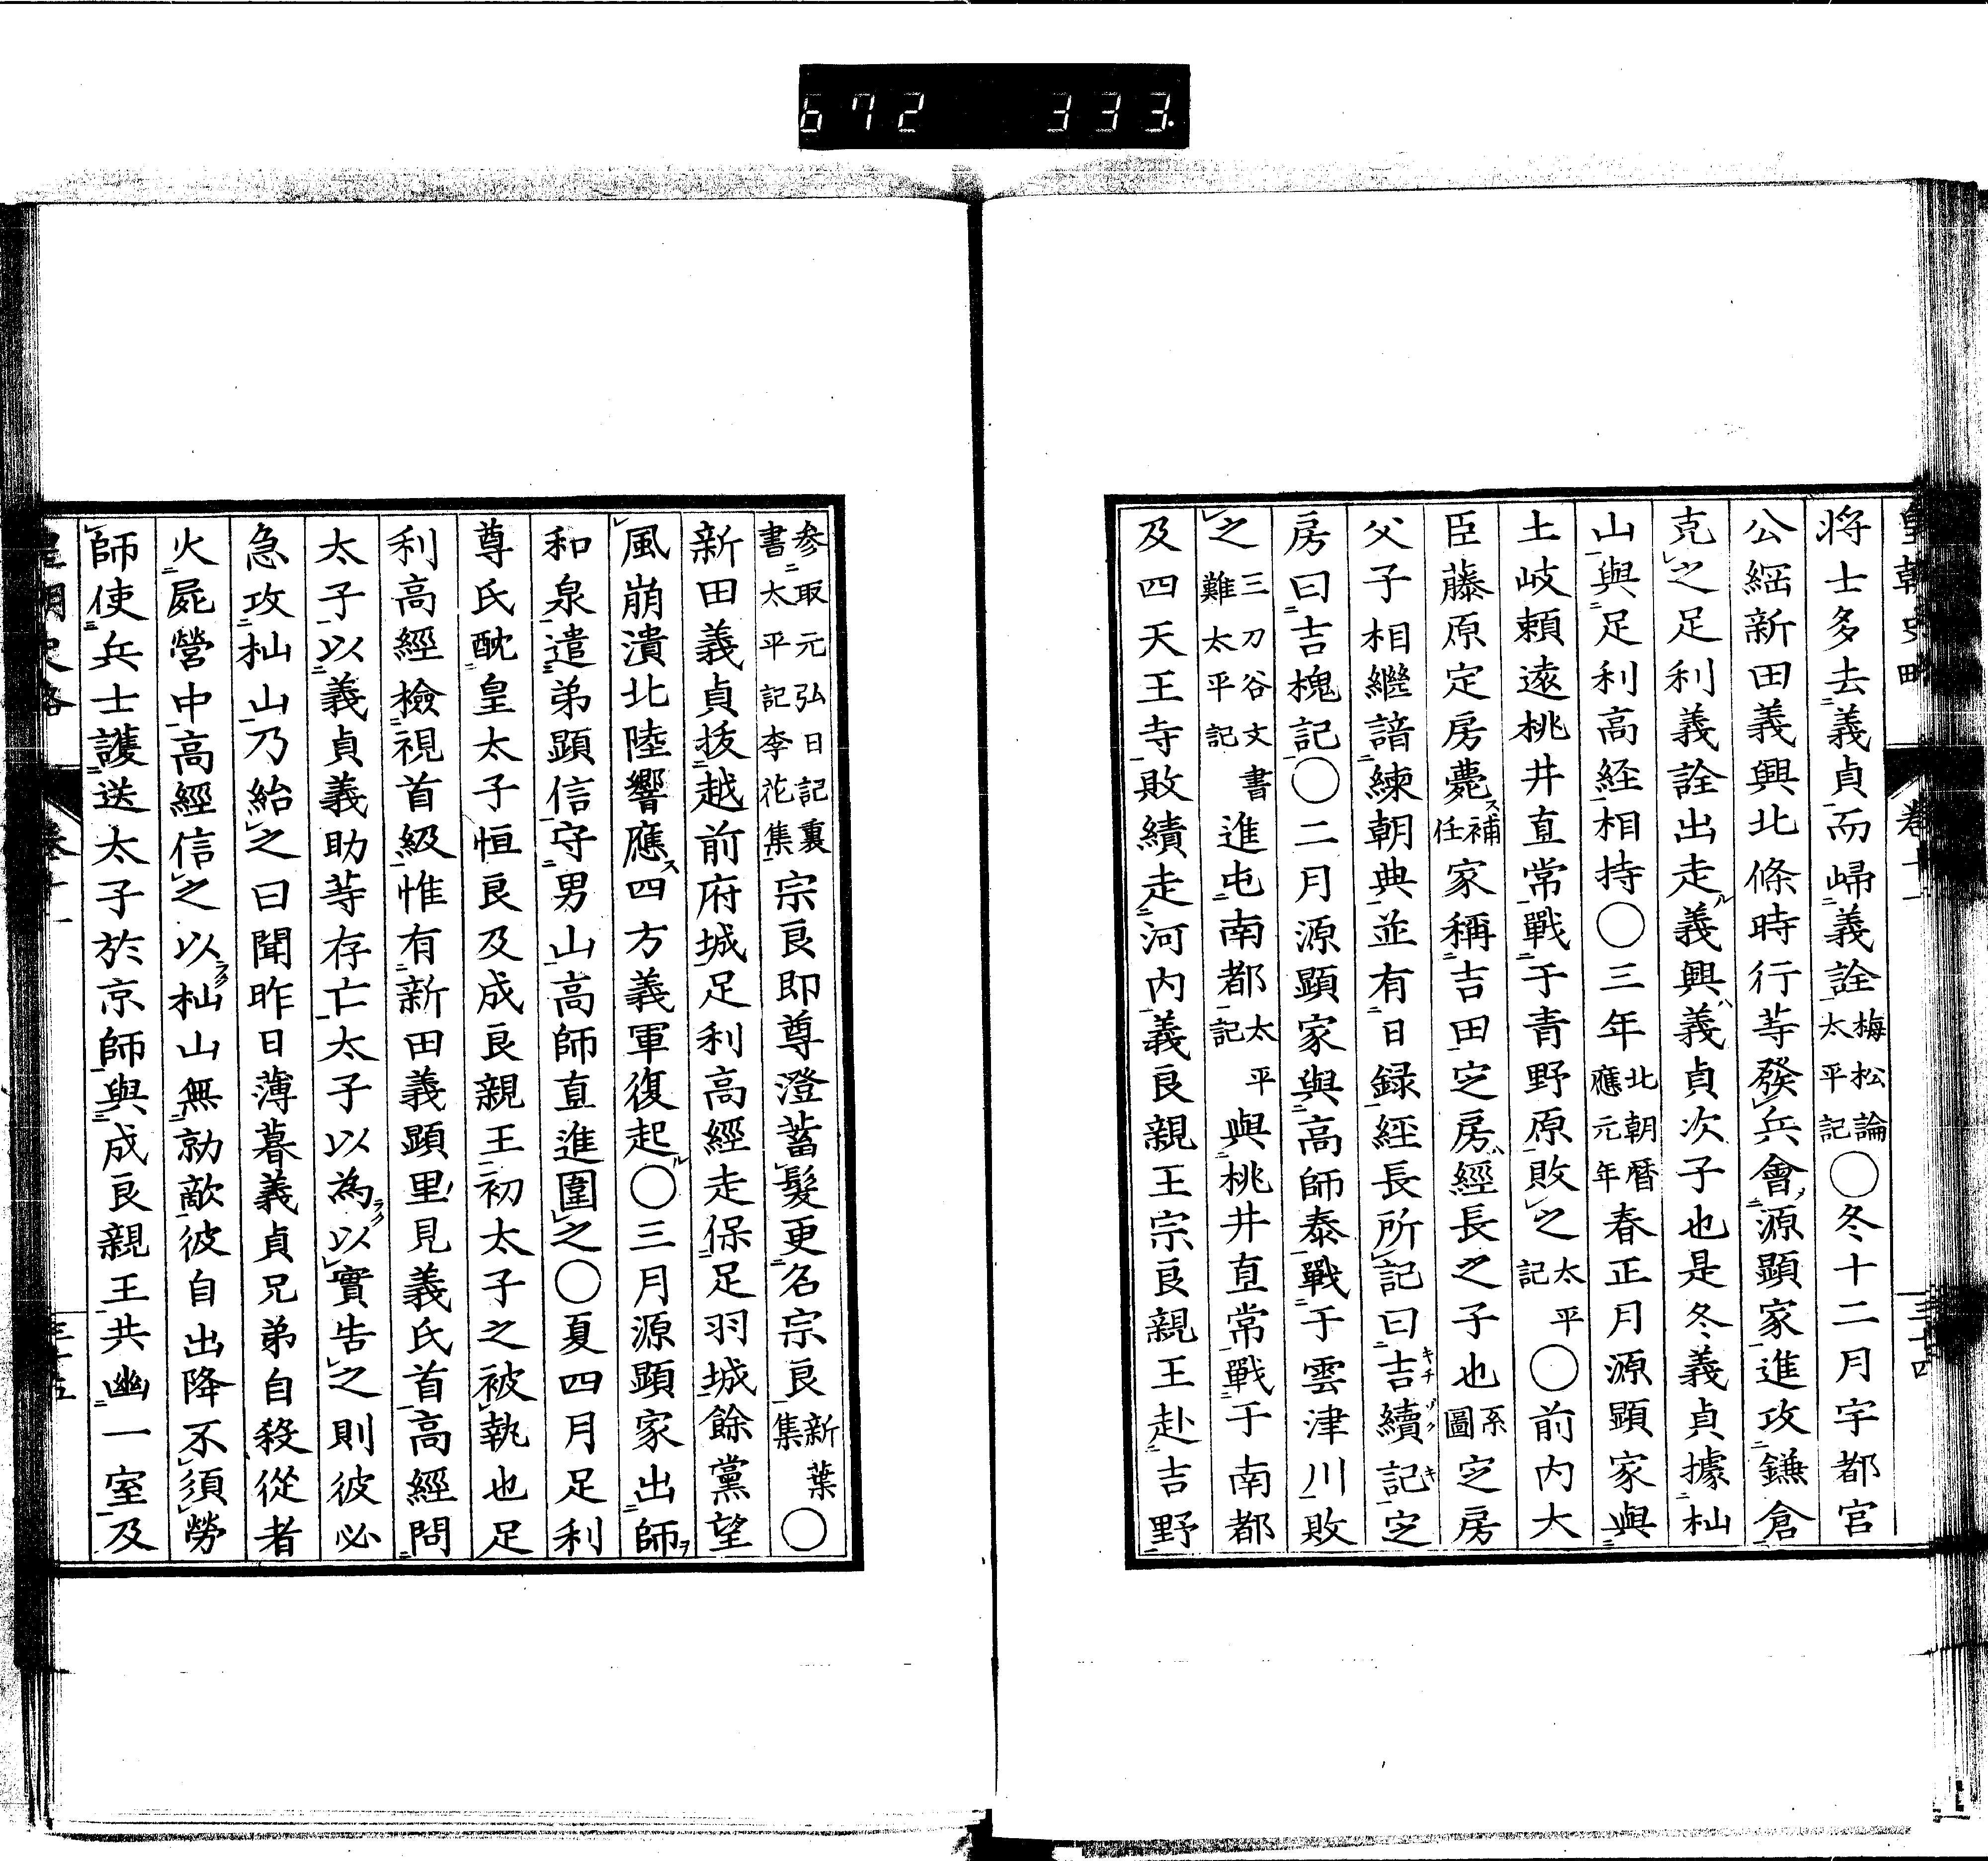 672 333.
皇朝史略 卷十一 三十四
将士多去義貞而歸義詮梅松論太平記〇冬十二月宇都宮
公綱新田義興北條時行等發兵會源顕家進攻鎌倉
克之足利義詮出走義興義貞次子也是冬義貞據杣
山與足利高経相持〇三年北朝暦應元年春正月源顕家與
土岐頼遠桃井直常戰于青野原敗之太平記〇前内大
臣藤原定房薨補任家稱吉田定房經長之子也系圖定房
父子相繼諳練朝典並有日録経長所記曰吉續記定
房曰吉槐記〇二月源顕家與高師泰戰于雲津川敗
之三刀谷文書難太平記進屯南都太平記與桃井直常戰于南都
及四天王寺敗績走河内義良親王宗良親王赴吉野
参取元弘日記裏書太平記李花集宗良即尊澄蓄髮更名宗良新葉集〇
新田義貞抜越前府城足利高經走保足羽城餘黨望
風崩潰北陸響應四方義軍復起〇三月源顕家出師
和泉遣弟顕信守男山高師直進圍之〇夏四月足利
尊氏酖皇太子恒良及成良親王初太子之被執也足
利高經檢視首級惟有新田義顕里見義氏首高經問
太子以義貞義助等存亡太子以為以實告之則彼必
急攻杣山乃紿之曰聞昨日薄暮義貞兄弟自殺從者
火屍營中高經信之以杣山無勍敵彼自出降不須勞
師使兵士護送太子於京師與成良親王共幽一室及